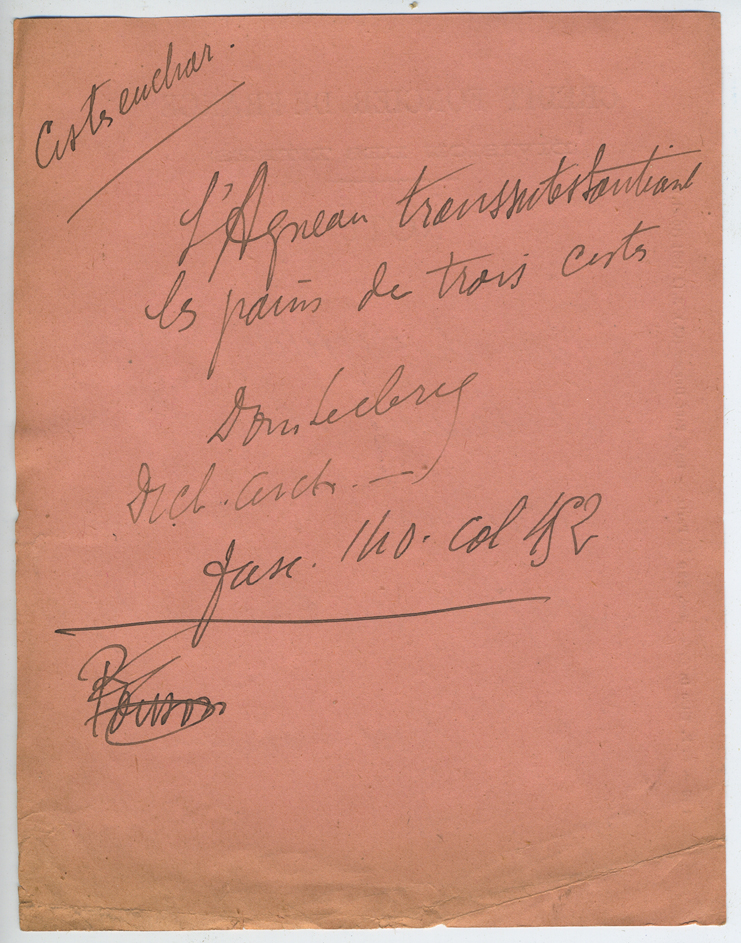 Cistes euchar.
L'Agneau transsubstantiant
les pains de trois cistes
Dom Leclercq
Dict. Arch. —.
fasc. 140. col 452
Poisson